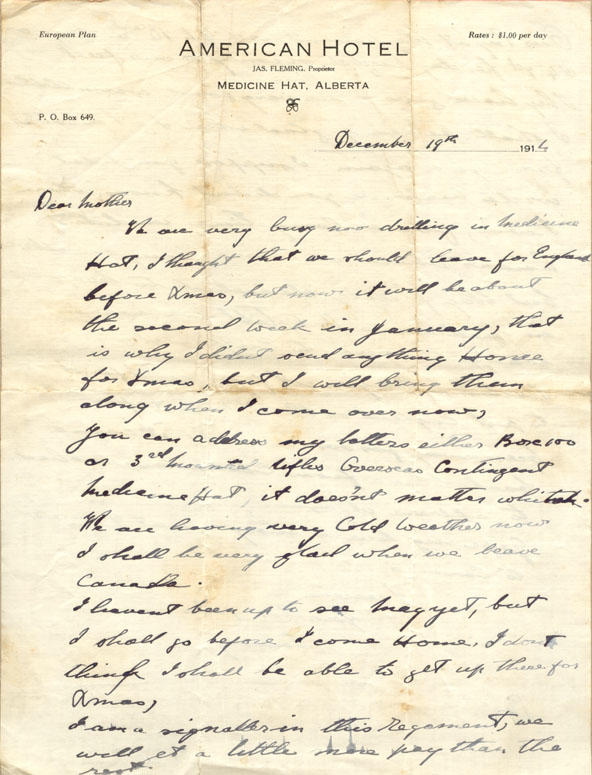 European Plan
Rates: $1.00 per day
AMERICAN HOTEL
JAS. FLEMING, Proprietor
MEDICINE HAT, ALBERTA
P. O. Box 649.
December 19th 1914
Dear Mother
We are very busy now drilling in Medicine
Hat, I thought that we should leave for England
before Xmas, but now it will be about
the second week in January, that
is why I didn't send anything Home
for Xmas, but I will bring them
along when I come over now,
You can address my letters either Box 100
or 3rd Mounted rifles Overseas Contingent
Medicine Hat, it doesn't matter which.
We are having very Cold weather now
I shall be very glad when we leave
Canada.
I havent been up to see May yet, but
I shall go before I come Home. I dont
think I shall be able to get up there for
Xmas,
I am a signaller in this Regament, we
will get a little more pay than the
rest